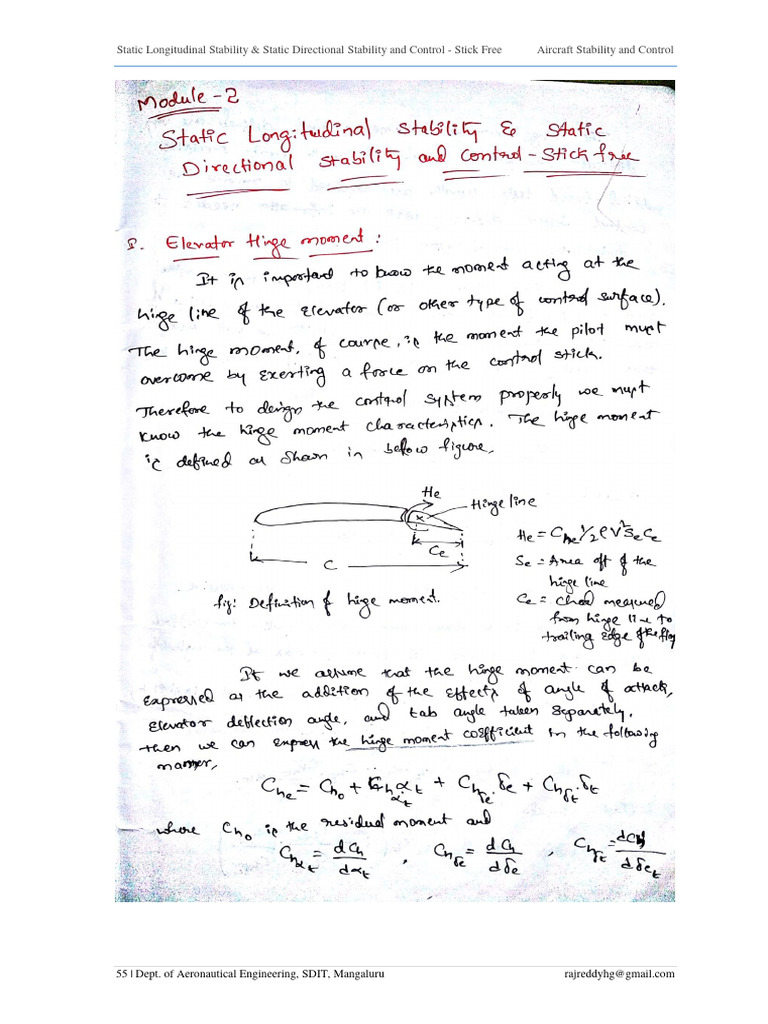 Static Longitudinal Stability & Static Directional Stability and Control - Stick Free Aircraft Stability and Control
Module-2
Static Longitudinal Stability & Static
Directional Stability and Control - Stick free
I. Elevator Hinge moment :
It is important to know the moment acting at the
hinge line of the elevator (or other type of control surface).
The hinge moment, of course, is the moment the pilot must
overcome by exerting a force on the control stick.
Therefore to design the control system properly we must
know the hinge moment characteristics. The hinge moment
is defined as shown in below figure,
He
Hinge line
Ce
C
He = Che 1/2 ρV²SeCe
Se = Area aft of the
hinge line
Ce = chord measured
from hinge line to
trailing edge of the flap
fig: Definition of hinge moment.
If we assume that the hinge moment can be
expressed as the addition of the effects of angle of attack,
elevator deflection angle, and tab angle taken separately,
then we can express the hinge moment coefficient in the following
manner,
Che = Cho + Chαt αt + Chδe . δe + Chδt . δt
where Cho is the residual moment and
Chαt = dCh/dαt , Chδe = dCh/dδe , Chδt = dCh/dδet
55 | Dept. of Aeronautical Engineering, SDIT, Mangaluru rajreddyhg@gmail.com